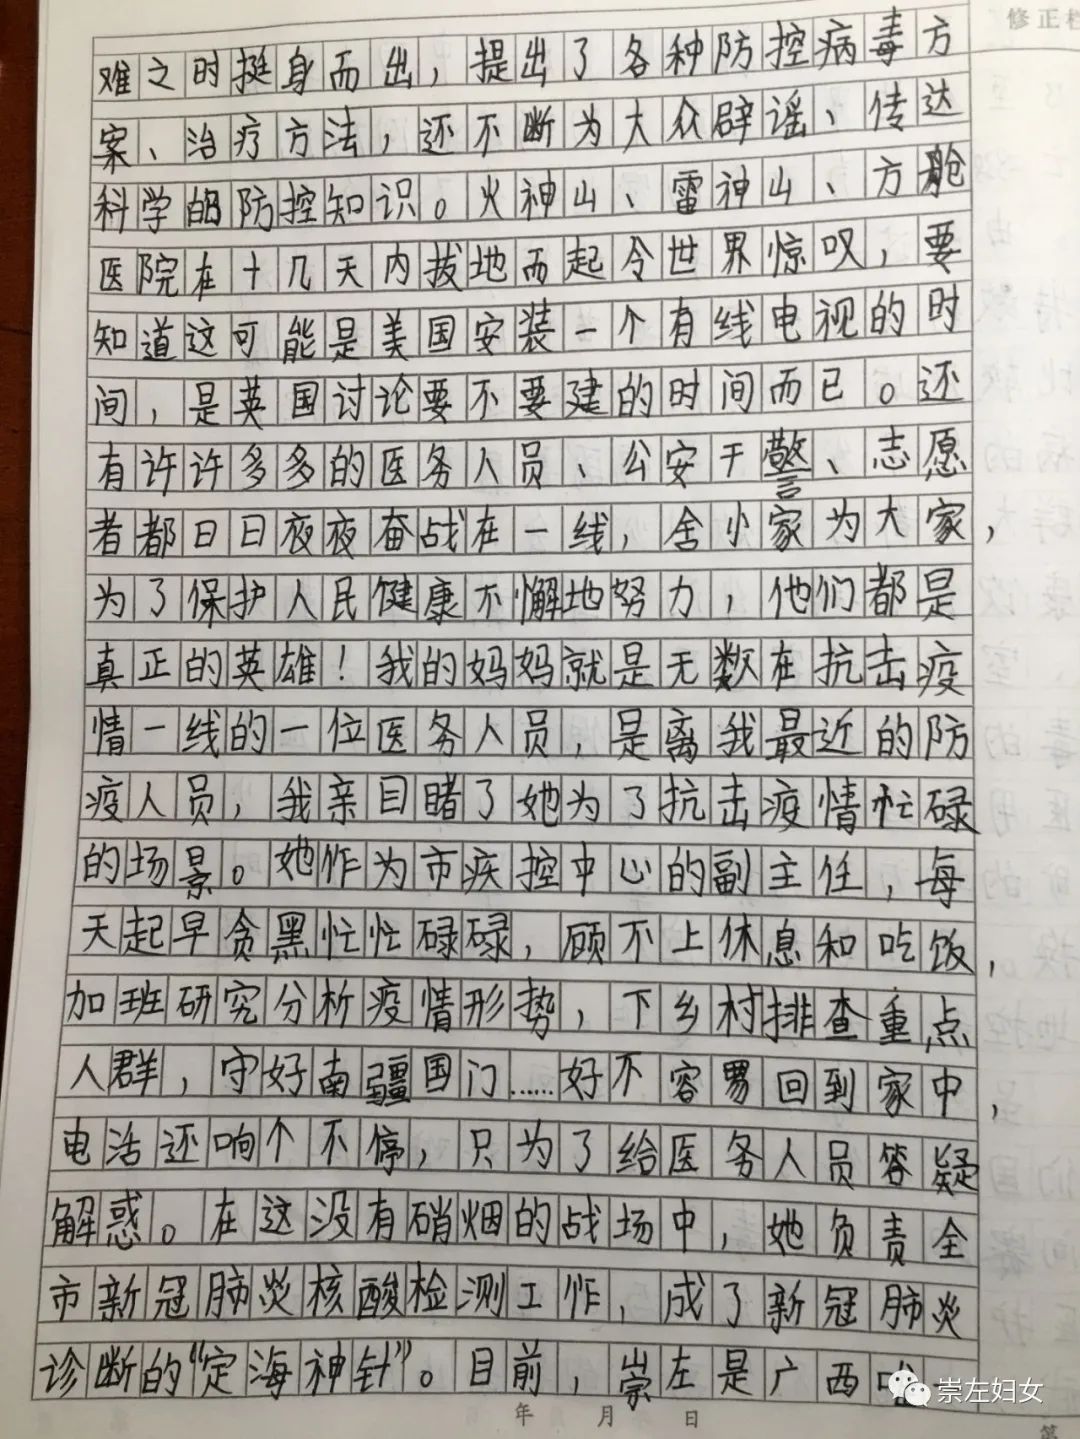 修正栏
难之时挺身而出，提出了各种防控病毒方
案、治疗方法，还不断为大众辟谣、传达
科学的防控知识。火神山、雷神山、方舱
医院在十几天内拔地而起令世界惊叹，要
知道这可能是美国安装一个有线电视的时
间，是英国讨论要不要建的时间而已。还
有许许多多的医务人员、公安干警、志愿
者都日日夜夜奋战在一线，舍小家为大家，
为了保护人民健康不懈地努力，他们都是
真正的英雄！我的妈妈就是无数在抗击疫
情一线的一位医务人员，是离我最近的防
疫人员，我亲目睹了她为了抗击疫情忙碌
的场景。她作为市疾控中心的副主任，每
天起早贪黑忙忙碌碌，顾不上休息和吃饭，
加班研究分析疫情形势，下乡村排查重点
人群，守好南疆国门……好不容易回到家中，
电话还响个不停，只为了给医务人员答疑
解惑。在这没有硝烟的战场中，她负责全
市新冠肺炎核酸检测工作，成了新冠肺炎
诊断的“定海神针”。目前，崇左是广西唯一
年 月 日
崇左妇女
第